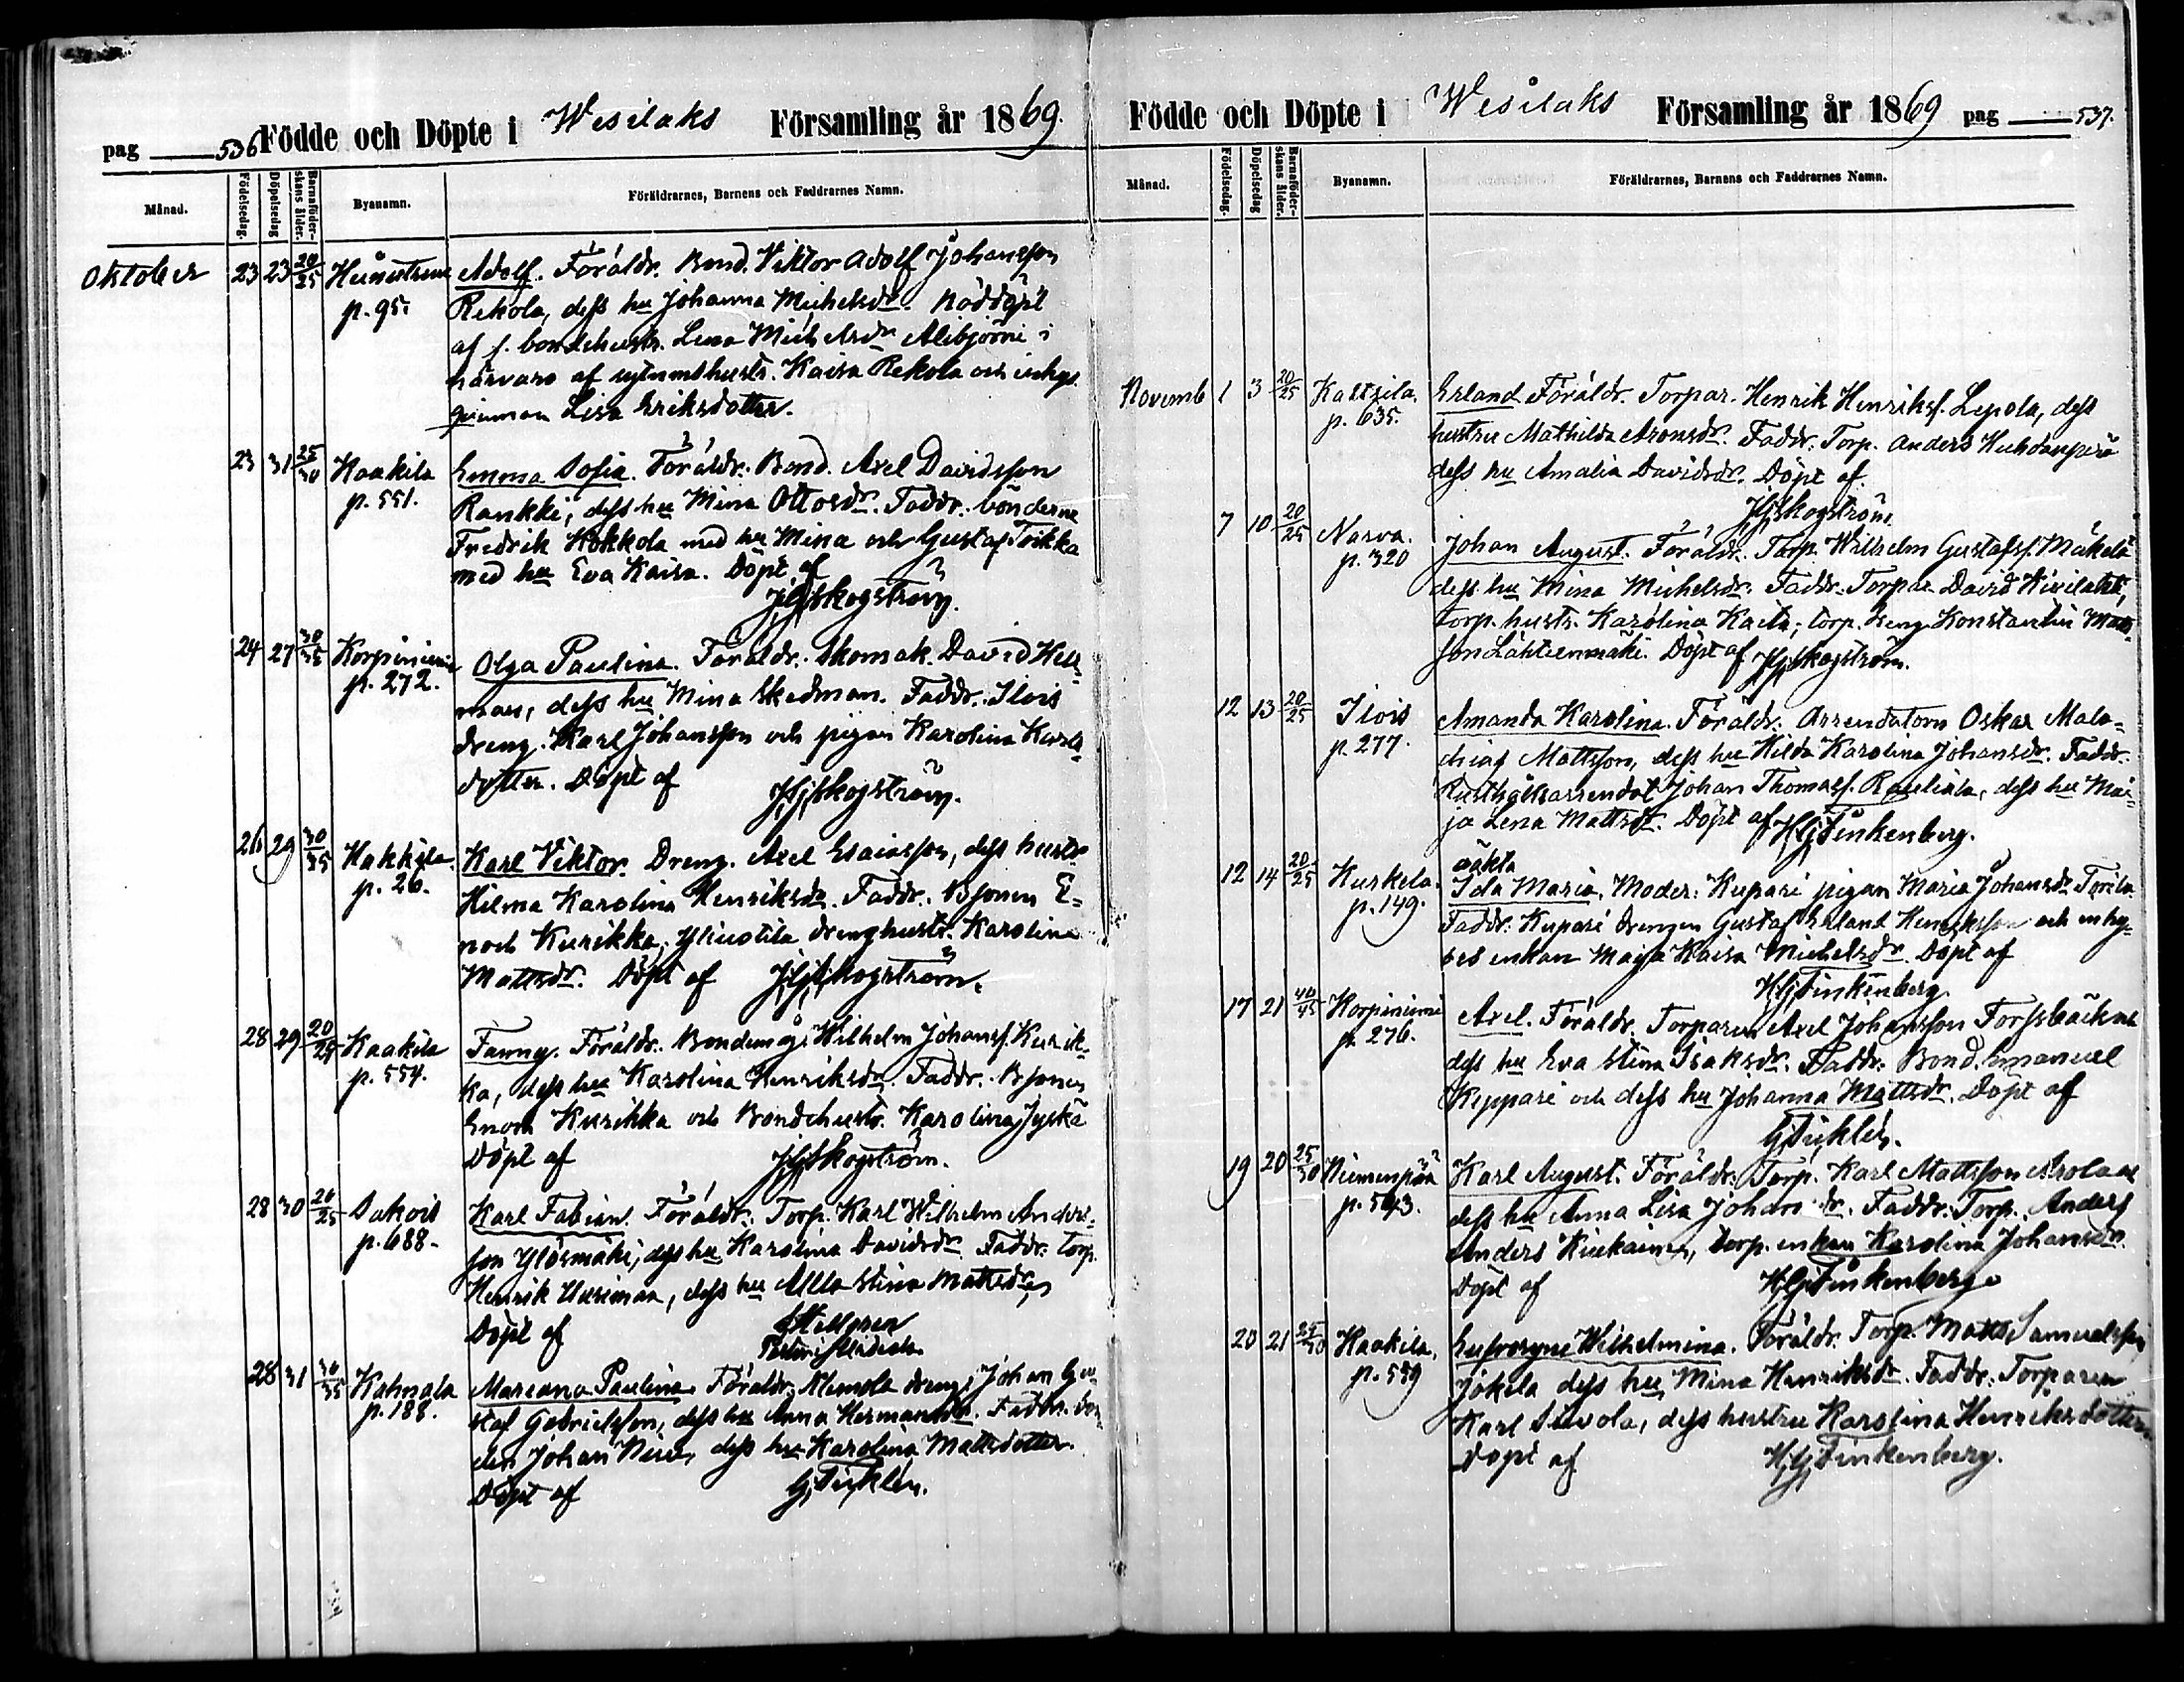 pag 536 Födde och Döpte i Wesilaks Församling år 1869.
Månad.
Födelsedag.
Döpelsedag
Barnaföder-
skans ålder.
Byanamn.
Föräldrarnes, Barnens och Faddrarnes Namn.
Oktober 23 23 20/25 Adolf. Föräldr. Bond. Viktor Adolf Johansson
p. 95. Rekola, dess hu Johanna Michelsdr. Nöddöpt
af f. bondehustr. Lena Michelsdr Alibjörni i
närvaro af hustr. Kaisa Rekola och inhys
qvinnan Lisa Eriksdotter.
23 31 25/30 Kaakila Emma Sofia. Föräldr. Bond. Axel Davidsson
p. 551. Rankki, dess hu Mina Ottosdr. Faddr. bönderne
Fredrik Kokkola med hu Mina och Gustaf Toikka
med hu Eva Kaisa. Döpt af
HJSkogström.
24 27 30/35 Korpiniemi Olga Paulina. Föräldr. Skomak. David Hell-
p. 272. man, dess hu Mina Skedman. Faddr. Ilois
dreng. Karl Johansson och pigan Karolina Karls-
dotter. Döpt af HJSkogström.
26 29 30/35 Hakkila Karl Viktor. Dreng. Axel Esaiasson, dess hustr
p. 26. Hilma Karolina Henriksdr. Faddr. Bsonen E-
noch Kurikka, drenghustr. Karolina
Mattsdr. Döpt af HJSkogström.
28 29 20/25 Kaakila Fanny. Föräldr. Bondemåg. Wilhelm Johanss. Kurik-
p. 554. ka, dess hu Karolina Henriksdr. Faddr. Bsonen
Enoch Kurikka och Bondehustr. Karolina Jyskä
Döpt af HJSkogström.
28 30 20/25 Sakois Karl Fabian. Föräldr. Torp. Karl Wilhelm Anders-
p. 688. son Ylösmäki, dess hu Karolina Davidsdr Faddr. torp.
Henrik dess hu Ulla Stina Mattsdr,
Döpt af
28 31 30/35 p. 188. Mareana Paulina. Föräldr. dreng. Johan Gu-
staf Gabrielsson, dess hu Anna Hermansdr. Faddr. bon
den Johan dess hu Karolina Mattsdotter.
Döpt af
Födde och Döpte i Wesilaks Församling år 1869 pag 537.
Månad.
Födelsedag.
Döpelsedag
Barnaföder-
skans ålder.
Byanamn.
Föräldrarnes, Barnens och Faddrarnes Namn.
Novemb 1 3 20/25 Kaltsila. Erland. Föräldr. Torpar. Henrik Henrikss. Lepola, dess
p. 635. hustru Mathilda Aronsdr. Faddr. Torp. Anders
dess hu Amalia Davidsdr. Döpt af
HJSkogström
7 10 20/25 Narva. Johan August. Föräldr. Torp. Wilhelm Gustafss. Mäkelä
p. 320 dess hu Mina Michelsdr. Faddr. Torpar. David
torp. hustr. Karolina Kaita, torp. dreng Konstantin Matts
son Lähteenmäki. Döpt af HJSkogström.
12 13 20/25 Ilois Amanda Karolina. Föräldr. Arrendatorn Oskar Mala-
p. 277. chias Mattsson, dess hu Hilda Karolina Johansdr. Faddr.
Rusthållsarrendat Johan Thomass. dess hu Ma-
ja Lena Mattsdr. Döpt af HGTinkenberg.
12 14 20/25 Kurkela. oäkta
p. 149. Ida Maria. Moder: Kupari pigan Maria Johansdr
Faddr: Kupari drengen Gustaf Erland Henriksson och inhy-
ses enkan Maja Kaisa Michelsdr. Döpt af
HGTinkenberg
17 21 40/45 Korpiniemi Axel. Föräldr. Torparen Axel Johansson Forssbacka
p. 276. dess hu Eva Stina Isaksdr. Faddr: Bond. Emanuel
Keppari och dess hu Johanna Mattsdr. Döpt af
19 20 25/30 Niemenpää Karl August. Föräldr. Torp. Karl Mattsson
p. 593. dess hu Anna Lisa Johansdr. Faddr: Torp. Anders
Anders torp. enkan Karolina Johansdr.
Döpt af HGTinkenberg
20 21 Kaakila. Eufrosyne Wilhelmina. Föräldr. Torp. Matts Samuelsson
p. 559 Jokela dess hu Mina Henriksdr. Faddr: Torparen
Karl dess hustru Karolina Henriksdotter
Döpt af HGTinkenberg.